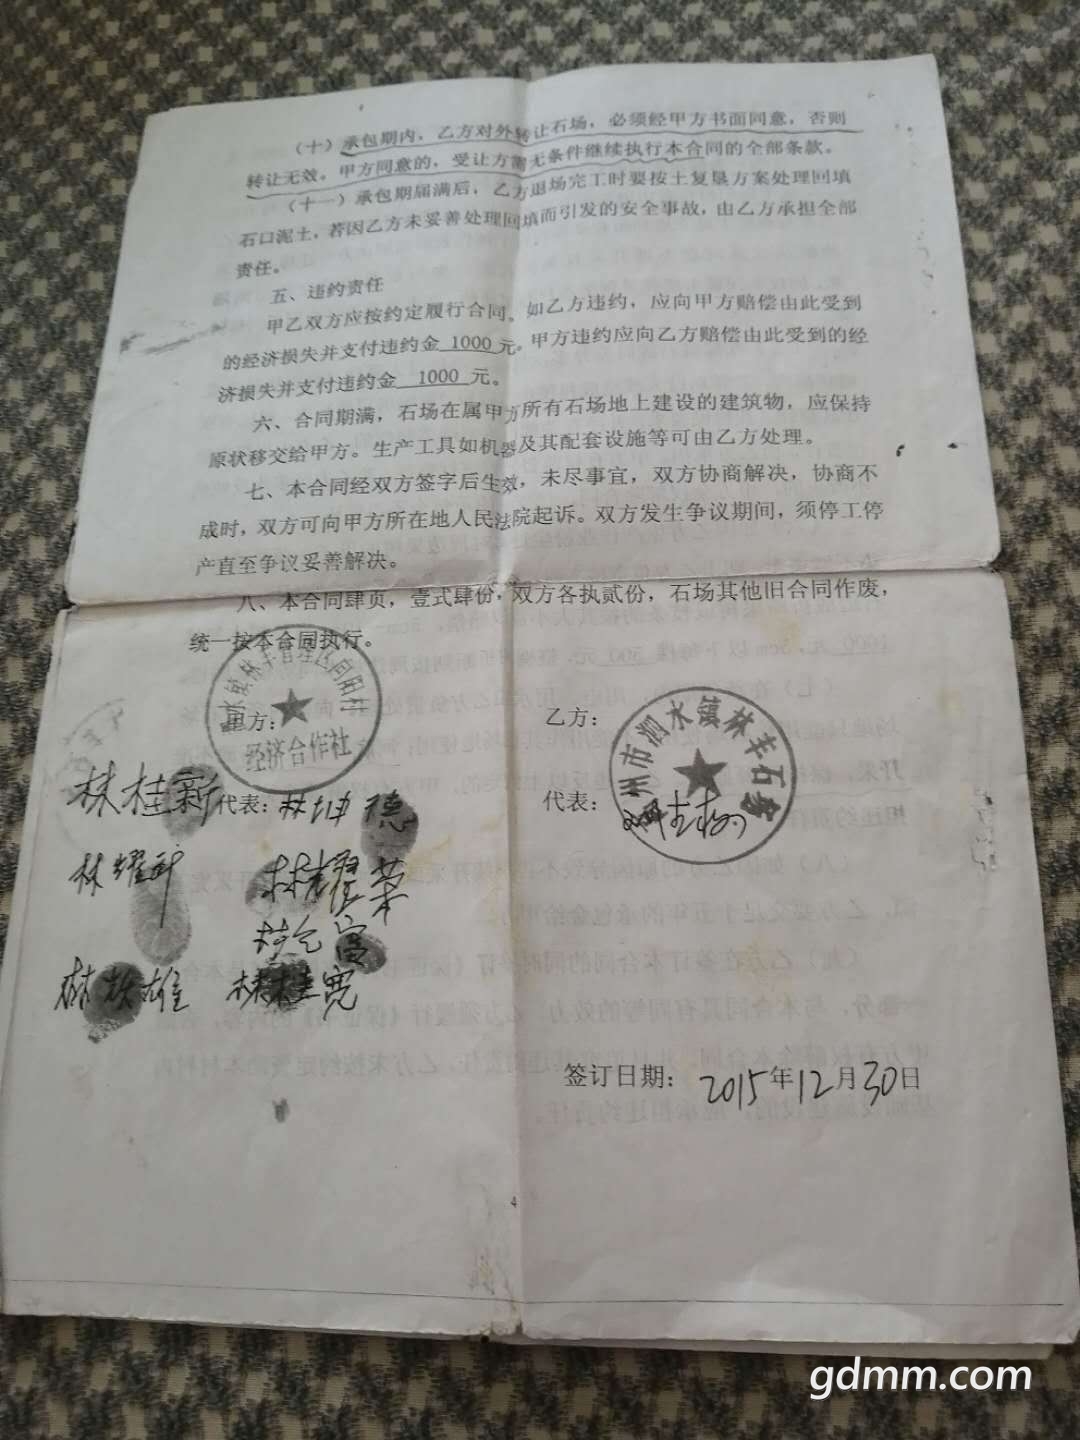 （十）承包期内，乙方对外转让石场，必须经甲方书面同意，否则
转让无效。甲方同意的，受让方需无条件继续执行本合同的全部条款。
（十一）承包期届满后，乙方退场完工时要按土复垦方案处理回填
石口泥土，若因乙方未妥善处理回填而引发的安全事故，由乙方承担全部
责任。
五、违约责任
甲乙双方应按约定履行合同。如乙方违约，应向甲方赔偿由此受到
的经济损失并支付违约金 1000 元。甲方违约应向乙方赔偿由此受到的经
济损失并支付违约金 1000 元。
六、合同期满，石场在属甲方所有石场地上建设的建筑物，应保持
原状移交给甲方。生产工具如机器及其配套设施等可由乙方处理。
七、本合同经双方签字后生效，未尽事宜，双方协商解决，协商不
成时，双方可向甲方所在地人民法院起诉。双方发生争议期间，须停工停
产直至争议妥善解决。
八、本合同肆页，壹式肆份，双方各执贰份，石场其他旧合同作废，
统一按本合同执行。
甲方：
经济合作社
乙方：
州市泗水镇林丰石
林桂新
代表：林坤德
代表：
林耀
林耀荣
林雄
林桂宽
签订日期：2015年12月30日
4
gdmm.com